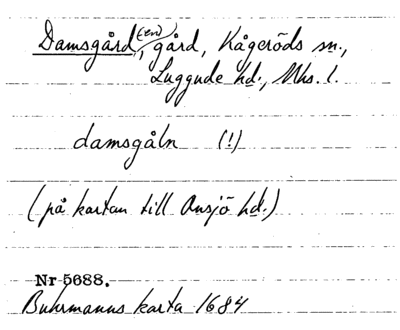 Damsgård, (en) gård, Kågeröds sn.,
Luggude hd., Mhs. l.
damsgåln (!)
(på kartan till Onsjö hd.)
Nr 5688.
Buhrmanns karta 1684